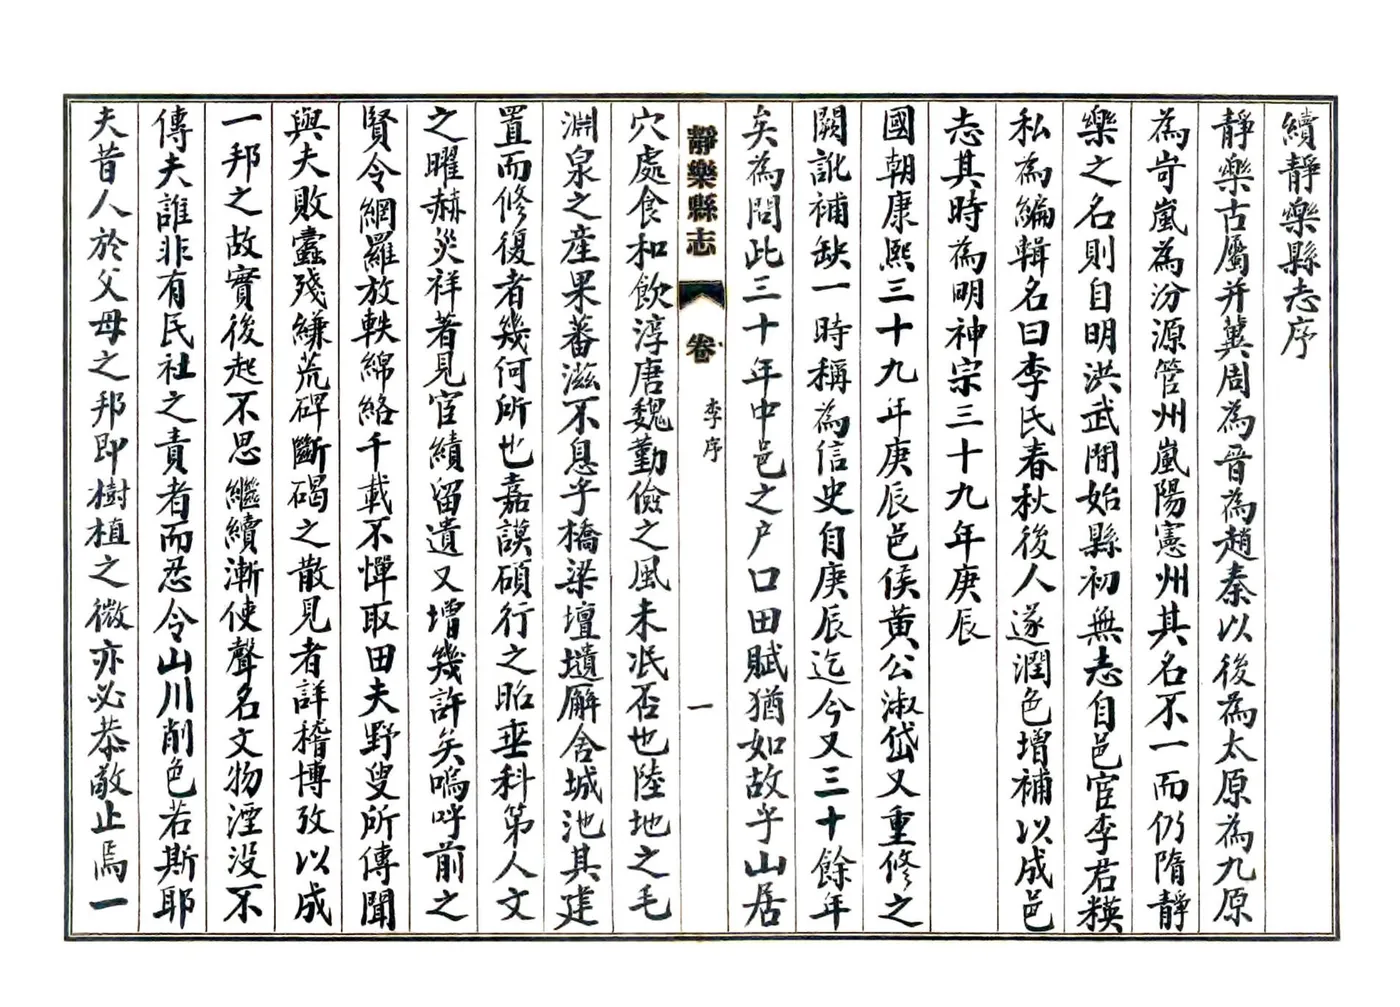 續靜樂縣志序
靜樂古屬并冀周為晉為趙秦以後為太原為九原
為岢嵐為汾源管州嵐陽憲州其名不一而仍隋靜
樂之名則自明洪武間始縣初無志自邑宦李君糗
私為編輯名曰李氏春秋後人遂潤色增補以成邑
志其時為明神宗三十九年庚辰
國朝康熙三十九年庚辰邑侯黄公淑岱又重修之
闕訛補缺一時稱為信史自庚辰迄今又三十餘年
矣為問此三十年中邑之户口田賦猶如故乎山居
靜樂縣志 卷 李序 一
穴處食和飲淳唐魏勤儉之風未泯否也陸地之毛
淵泉之産果蕃滋不息乎橋梁壇壝廨舍城池其建
置而修復者幾何所也嘉謨碩行之昭垂科第人文
之曜赫災祥著見宦績留遺又增幾許矣嗚呼前之
賢令網羅放軼綿絡千載不憚取田夫野叟所傳聞
與夫敗蠹殘縑荒碑斷碣之散見者詳稽博攷以成
一邦之故實後起不思繼續漸使聲名文物湮没不
傳夫誰非有民社之責者而忍令山川削色若斯耶
夫昔人於父母之邦即樹植之微亦必恭敬止焉一